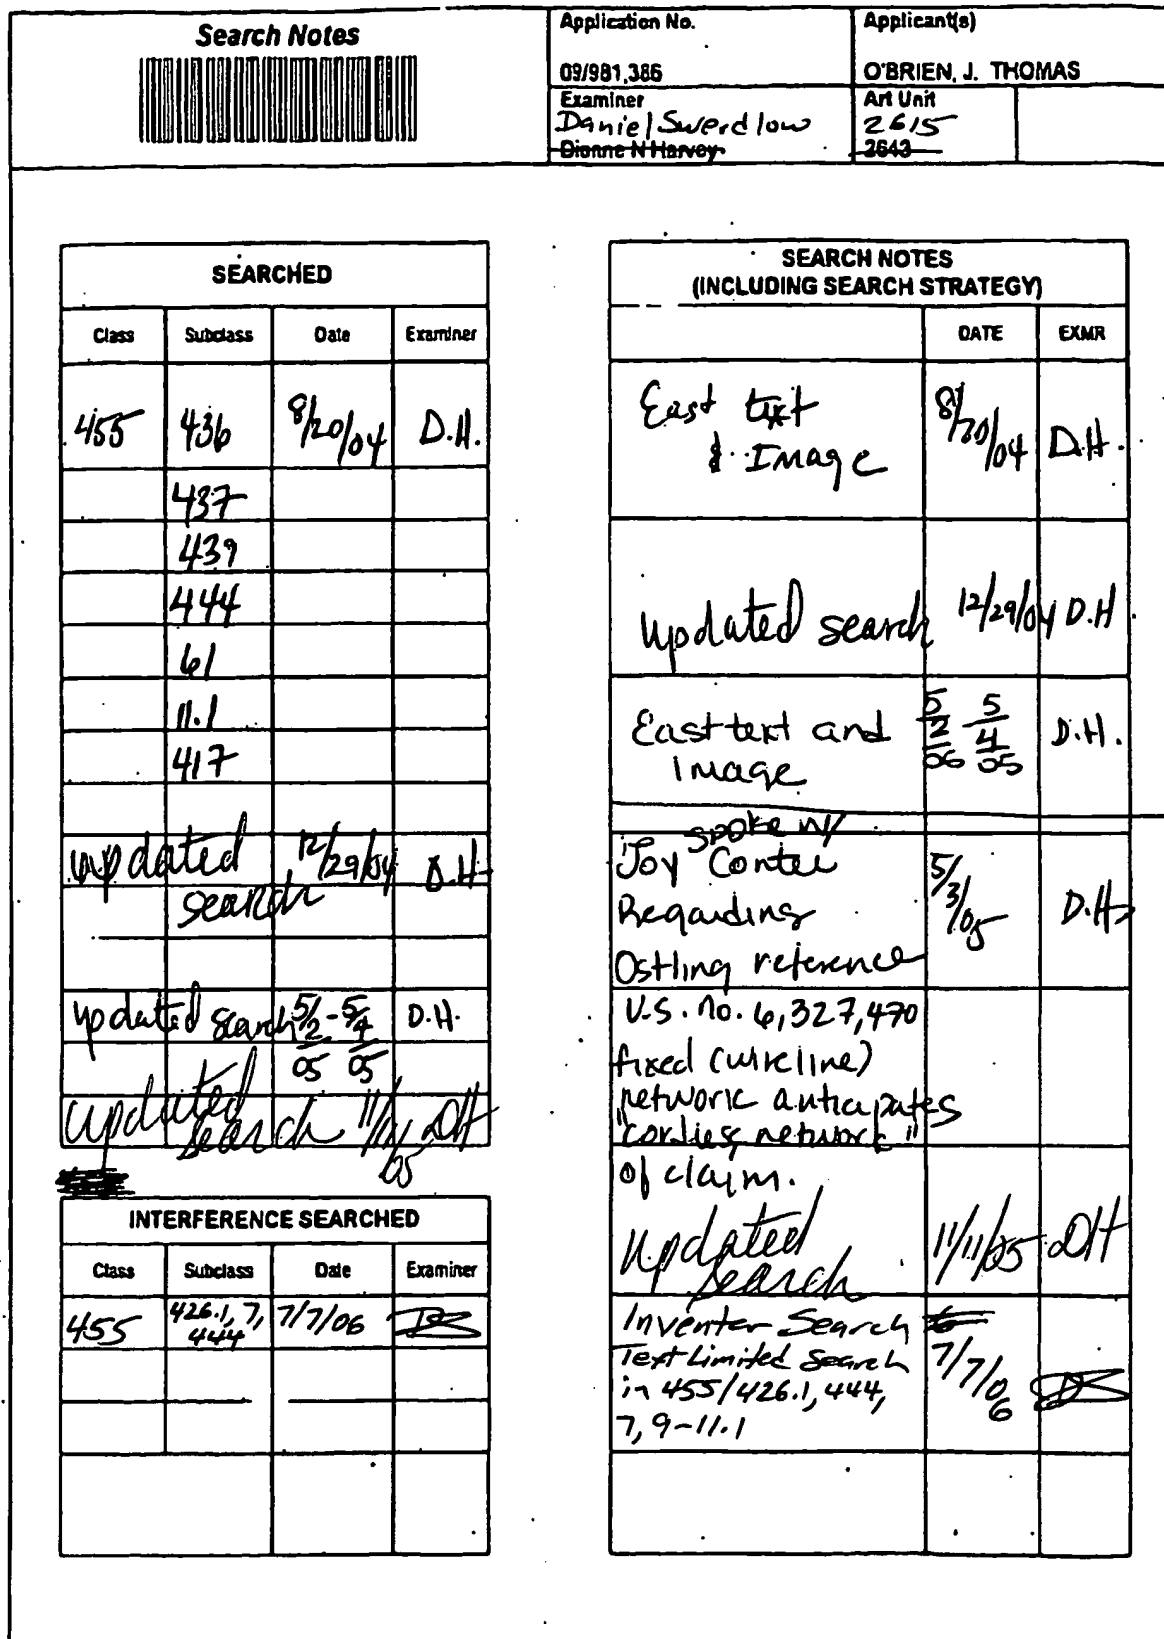 Search Notes
Application No.
09/981,386
Applicant(s)
O'BRIEN, J. THOMAS
Examiner
Daniel Swerdlow
Dionne N Harvey
Art Unit
2615
2643
SEARCHED
Class Subclass Date Examiner
455 436 8/20/04 D.H.
437
439
444
61
11.1
417
updated 12/29/04 D.H.
search
updated search 5/2 - 5/4 D.H.
05 05
updated
search 11/11/05 DH
INTERFERENCE SEARCHED
Class Subclass Date Examiner
455 426.1, 7, 7/7/06
444
SEARCH NOTES
(INCLUDING SEARCH STRATEGY)
DATE EXMR
East text 8/20/04 D.H.
& Image
updated search 12/29/04 D.H
East text and 5 5 D.H.
Image 2 4
05 05
spoke w/
Joy Contee 5/3/05 D.H.
Regarding
Ostling reference
U.S. no. 6,327,470
fixed (wireline)
network anticipates
"cordless network"
of claim.
updated 11/11/05 DH
search
Inventer Search
Text Limited Search 7/7/06
in 455/426.1, 444,
7, 9-11.1